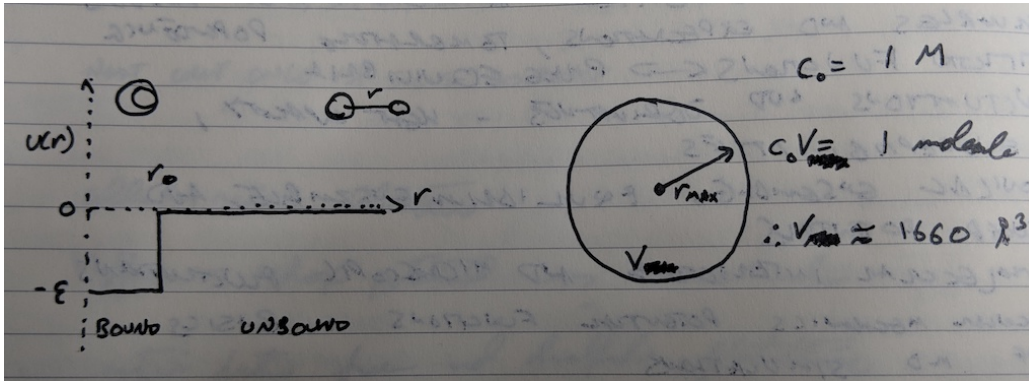 c₀ = 1 M
u(r)
r
r₀
0
r
-ε
BOUND UNBOUND
r_MAX
V
c₀V = 1 molecule
∴ V ≈ 1660 Å³